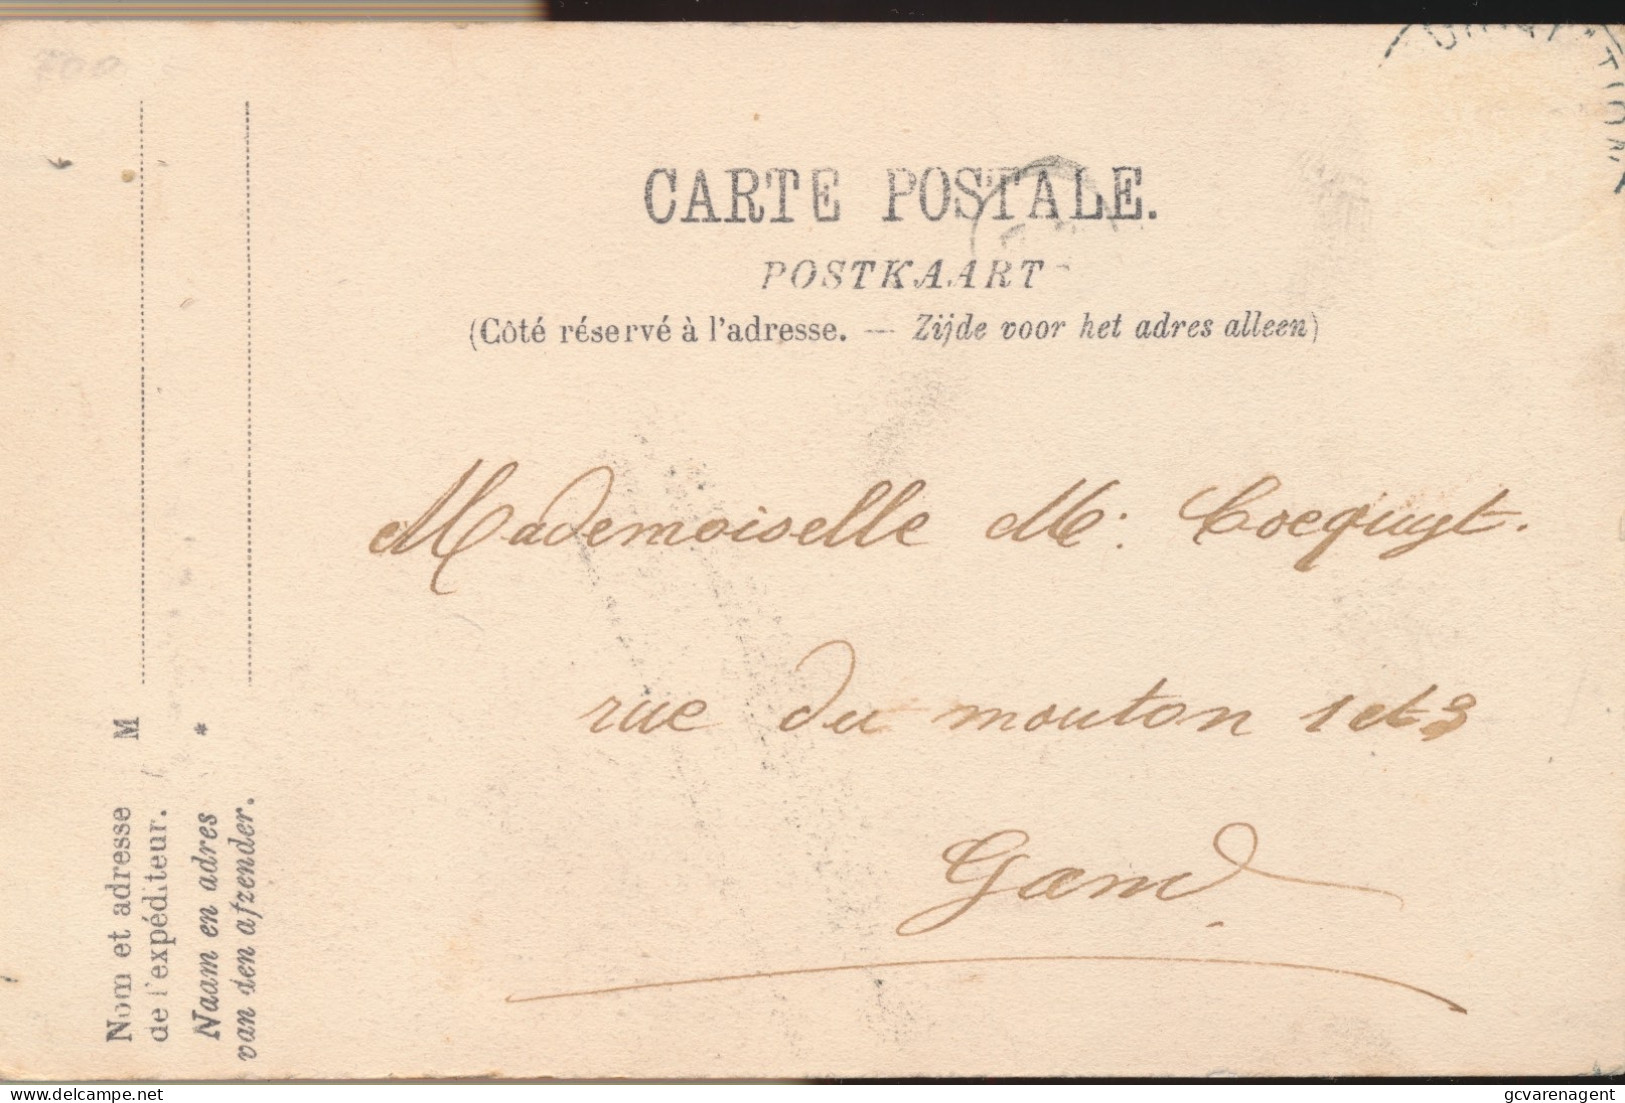 700
CARTE POSTALE.
POSTKAART
(Côté réservé à l'adresse. — Zijde voor het adres alleen)
Mademoiselle M: Cocquyt.
rue du mouton 1 et 3
Gand
Nom et adresse M
de l'expéditeur.
Naam en adres *
van den afzender.
delcampe.net
gcvarenagent